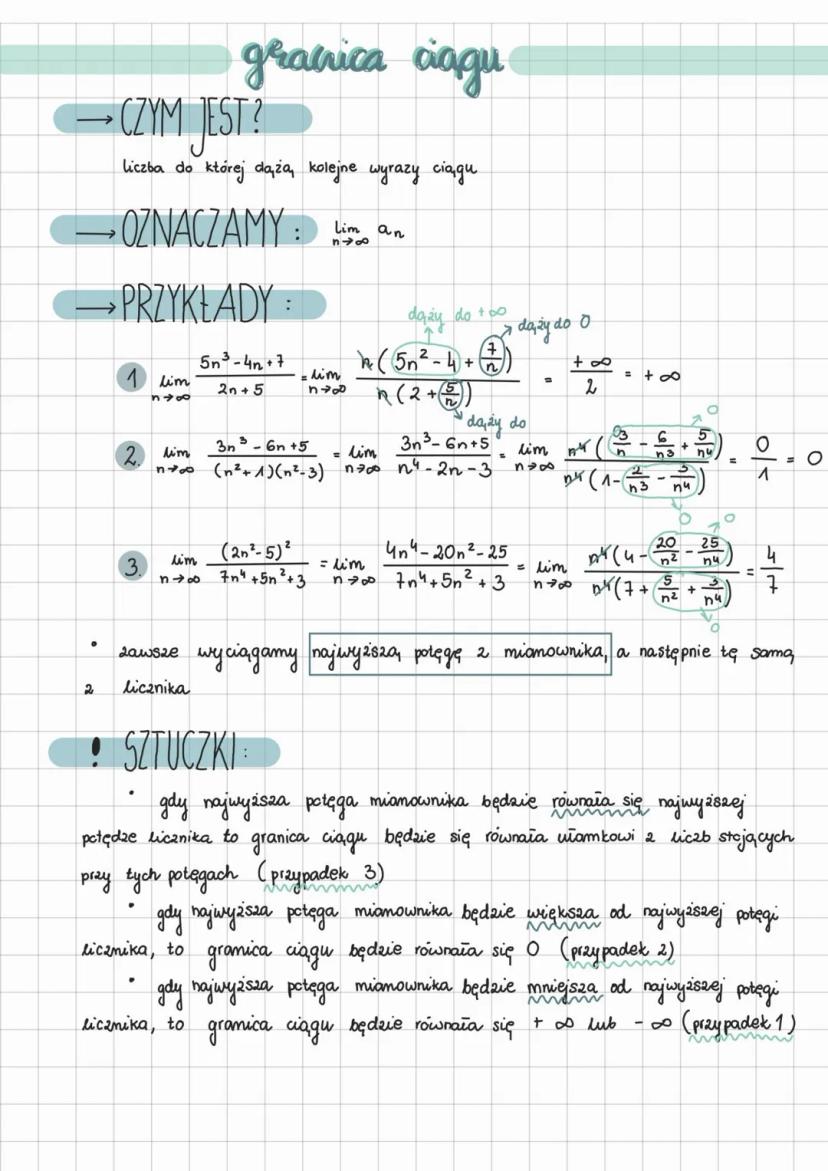 granica ciągu
→ CZYM JEST?
liczba do której dążą kolejne wyrazy ciągu
→ OZNACZAMY: lim n→∞ an
→ PRZYKŁADY:
dąży do +∞
dąży do 0
1 lim n→∞ (5n³-4n+7)/(2n+5) = lim n→∞ n(5n²-4+7/n)/n(2+5/n) = +∞/2 = +∞
dąży do
0
2. lim n→∞ (3n³-6n+5)/((n²+1)(n²-3)) = lim n→∞ (3n³-6n+5)/(n⁴-2n-3) = lim n→∞ n⁴(3/n-6/n³+5/n⁴)/n⁴(1-2/n³-3/n⁴) = 0/1 = 0
0 0
3. lim n→∞ (2n²-5)²/(7n⁴+5n²+3) = lim n→∞ (4n⁴-20n²-25)/(7n⁴+5n²+3) = lim n→∞ n⁴(4-20/n²-25/n⁴)/n⁴(7+5/n²+3/n⁴) = 4/7
0
• zawsze wyciągamy najwyższą potęgę z mianownika, a następnie tę samą
z licznika
! SZTUCZKI:
• gdy najwyższa potęga mianownika będzie równała się najwyższej
potędze licznika to granica ciągu będzie się równała ułamkowi z liczb stojących
przy tych potęgach (przypadek 3)
• gdy najwyższa potęga mianownika będzie większa od najwyższej potęgi
licznika, to granica ciągu będzie równała się 0 (przypadek 2)
• gdy najwyższa potęga mianownika będzie mniejsza od najwyższej potęgi
licznika, to granica ciągu będzie równała się +∞ lub -∞ (przypadek 1)